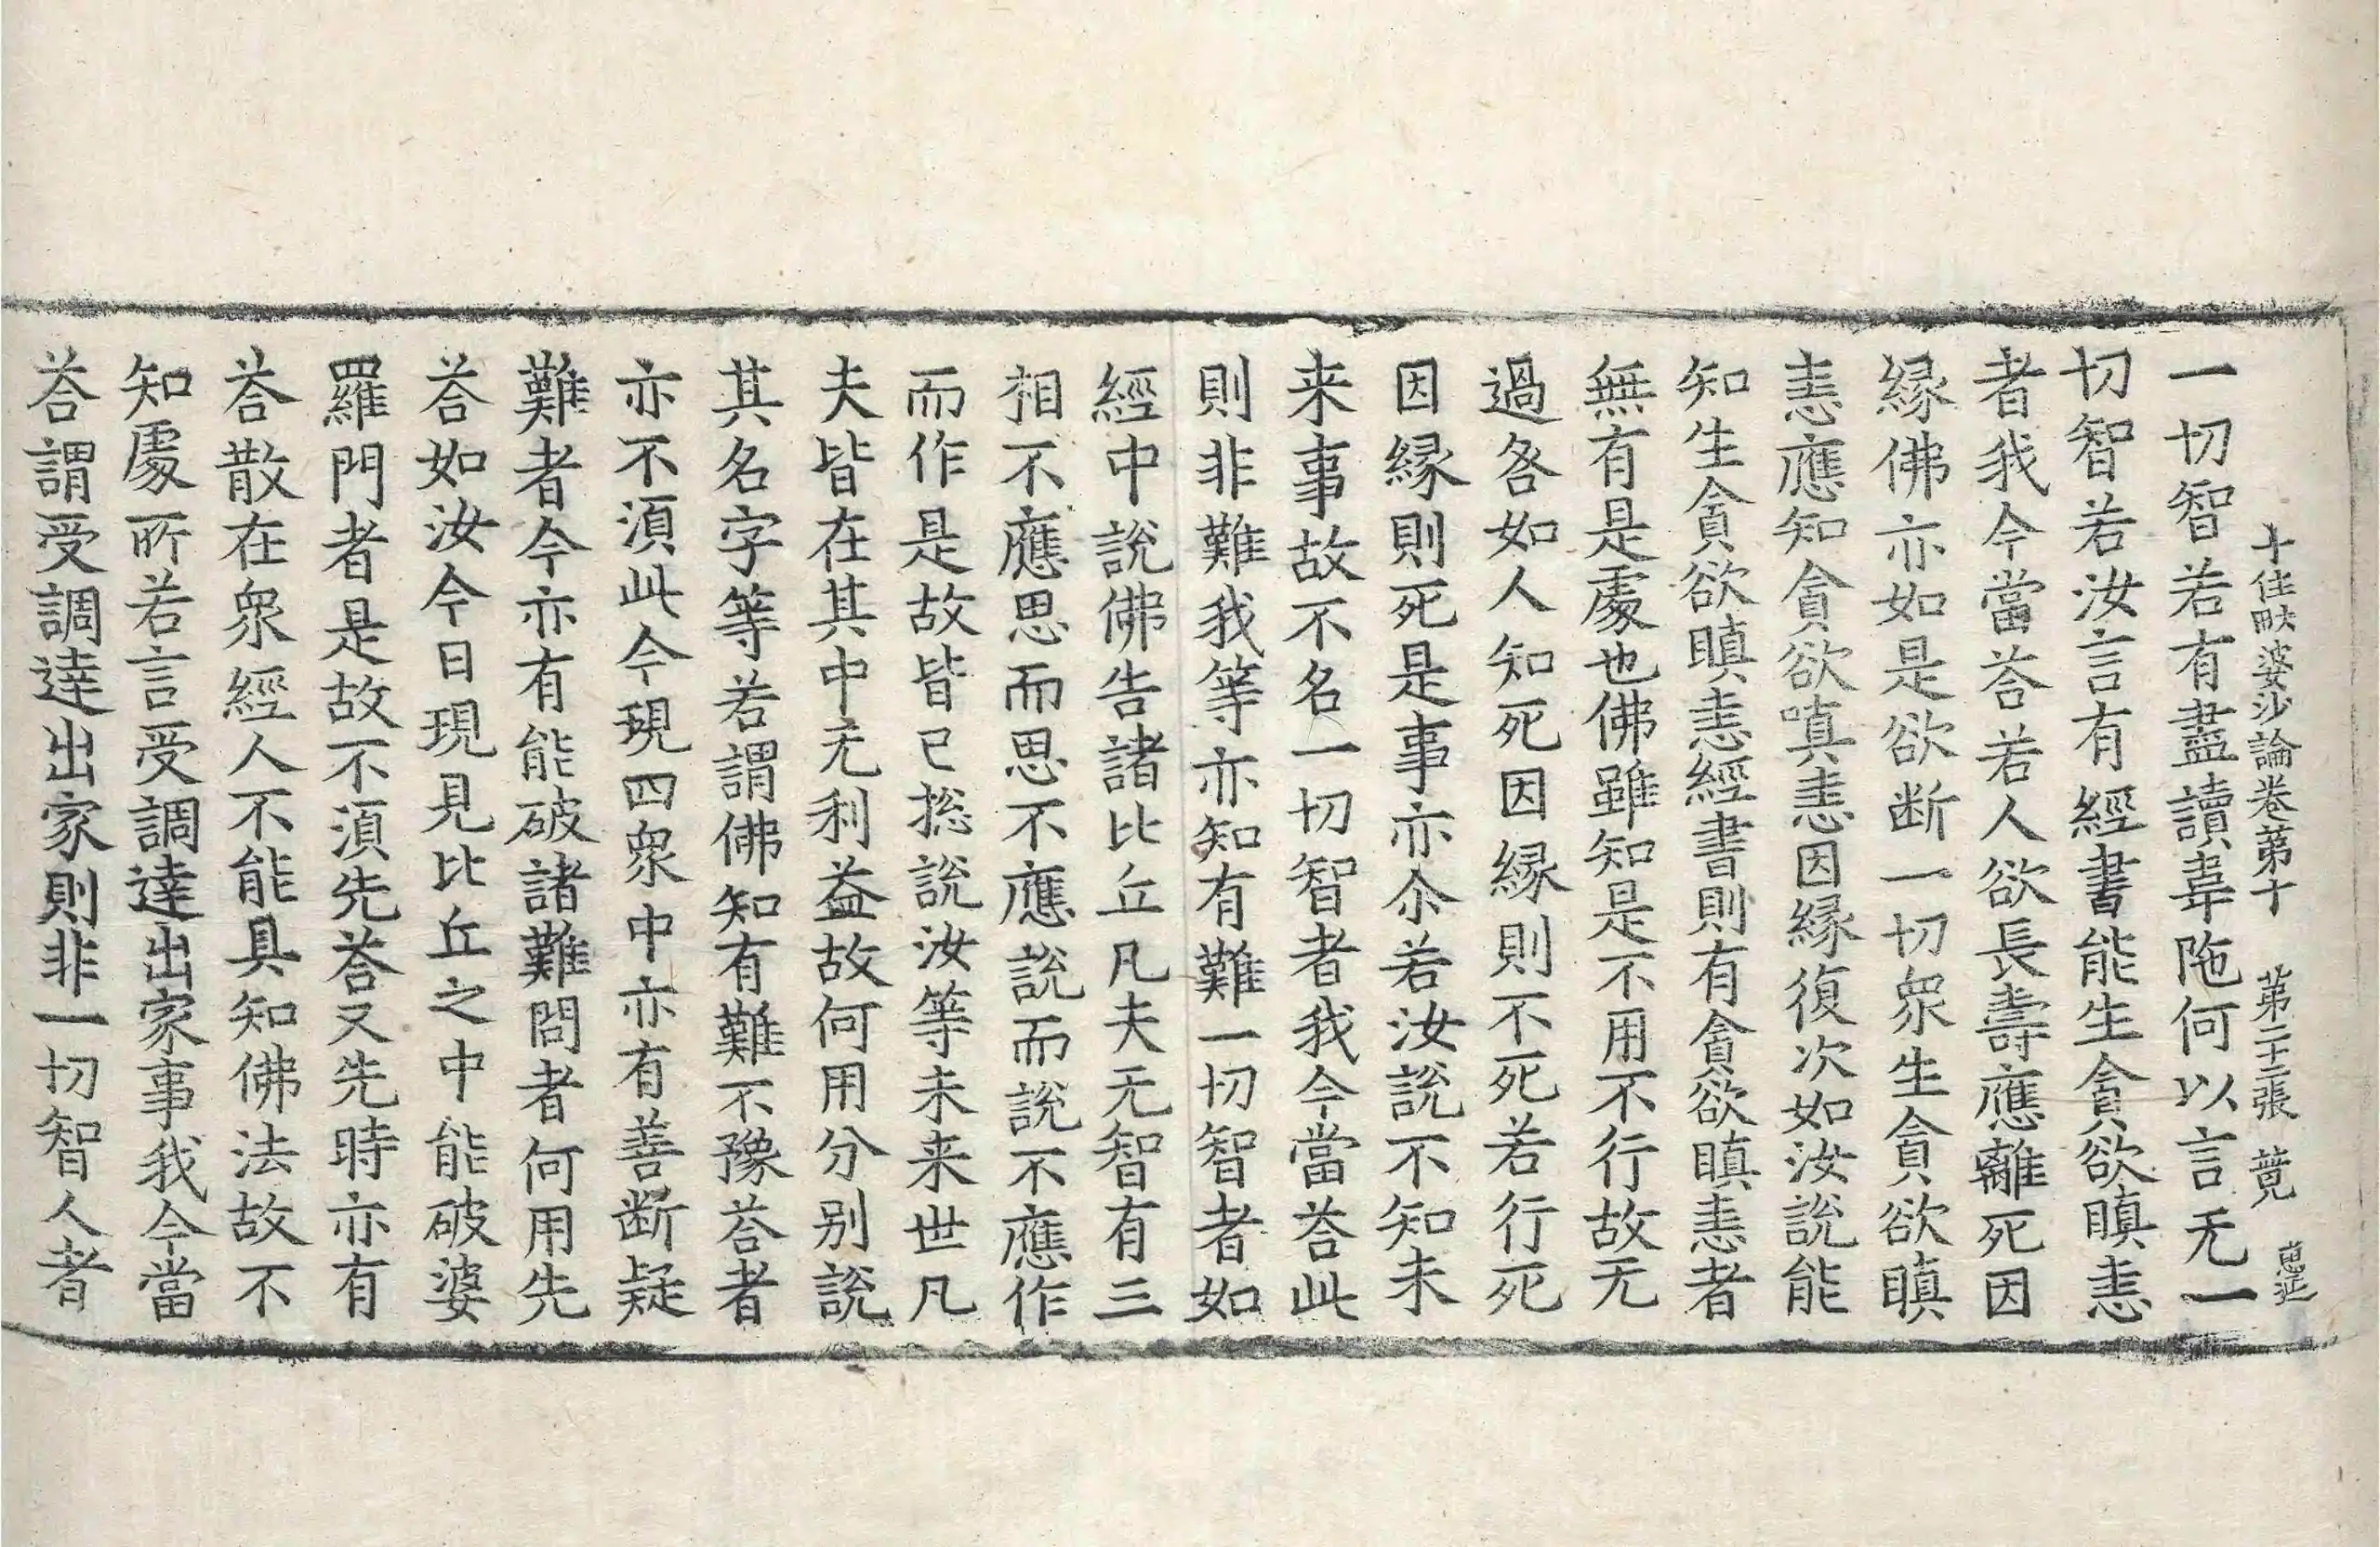 十住毗婆沙論卷苐十　苐二十二張　蒄
一切智若有盡讀韋陁何以言无一
切智若汝言有經書能生貪欲瞋恚
者我今當荅若人欲長壽應離死因
縁佛亦如是欲断一切衆生貪欲瞋
恚應知貪欲嗔恚因縁復次如汝說能
知生貪欲瞋恚經書則有貪欲瞋恚者
無有是處也佛雖知是不用不行故无
過各如人知死因縁則不死若行死
因縁則死是事亦尒若汝說不知未
来事故不名一切智者我今當荅此
則非難我等亦知有難一切智者如
經中說佛告諸比丘凡夫无智有三
相不應思而思不應說而說不應作
而作是故皆已捴說汝等未来世凡
夫皆在其中无利益故何用分别說
其名字等若謂佛知有難不豫荅者
亦不湏此今現四衆中亦有善断疑
難者今亦有能破諸難問者何用先
荅如汝今日現見比丘之中能破婆
羅門者是故不湏先荅又先時亦有
荅散在衆經人不能具知佛法故不
知處所若言受調達出家事我今當
荅謂受調達出家則非一切智人者